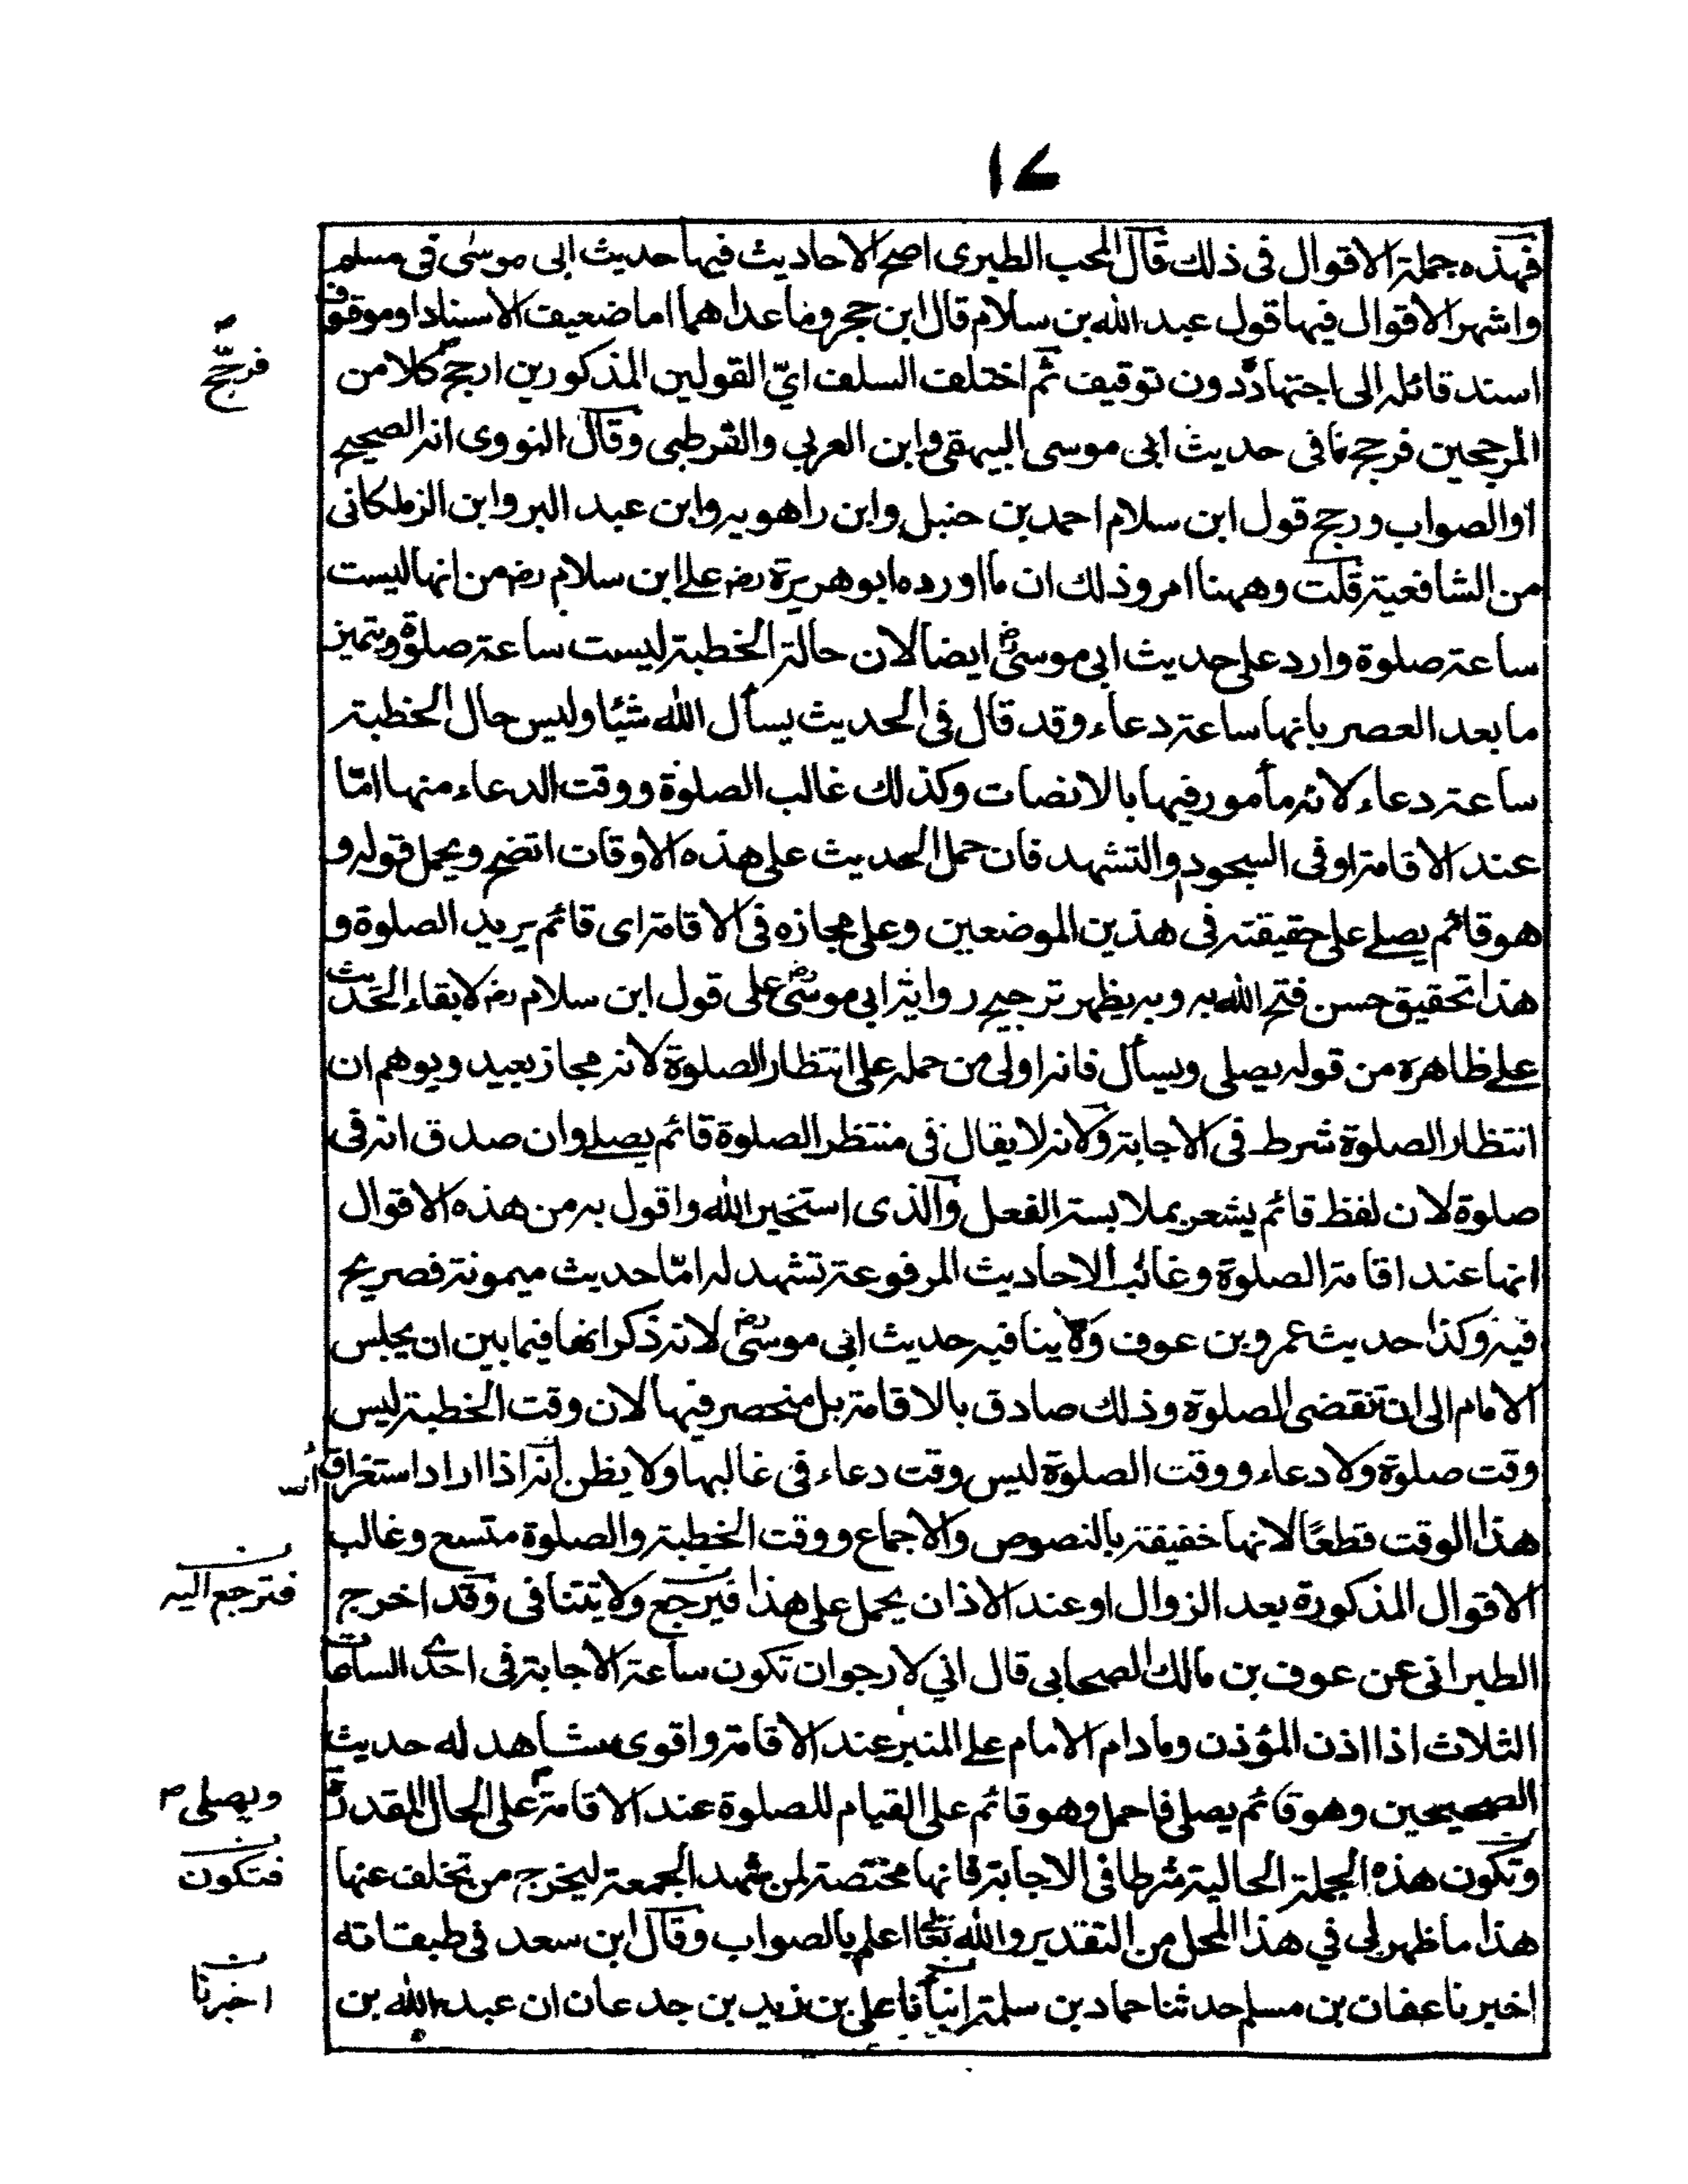 ١٧
فهذه جملة الاقوال فى ذلك قال المحب الطبرى اصح الاحاديث فيها حديث ابى موسى فى مسلم
واشهر الاقوال فيها قول عبد الله بن سلام قال ابن حجر وما عداهما اما ضعيف الاسناد او موقوف
اسند قائله الى اجتهاد دون توقيف ثم اختلف السلف ايّ القولين المذكورين ارجح كلا من
فرجّح
المرجحين فرجح ما فى حديث ابى موسى البيهقى وابن العربي والقرطبى وقال النووى انه الصحيح
او الصواب ورجح قول ابن سلام احمد بن حنبل وابن راهويه وابن عبد البر وابن الزملكانى
من الشافعية قلت وههنا امر وذلك ان ما اورده ابو هريرة رضـ على ابن سلام رضـ من انها ليست
ساعة صلوة وارد على حديث ابى موسىؓ ايضا لان حالة الخطبة ليست ساعة صلوة ويتميز
ما بعد العصر بانها ساعة دعاء وقد قال فى الحديث يسأل الله شيئا وليس حال الخطبة
ساعة دعاء لانه مأمور فيها بالانصات وكذلك غالب الصلوة ووقت الدعاء منها امّا
عند الاقامة او فى السجود والتشهد فان حمل الحديث على هذه الاوقات اتضح ويحمل قوله و
هو قائم يصلے على حقيقته فى هذين الموضعين وعلى مجازه فى الاقامة اى قائم يريد الصلوة و
هذا تحقيق حسن فتح الله به وبه يظهر ترجيح رواية ابى موسىؓ على قول ابن سلام رضـ لابقاء الحديث
علے ظاهره من قوله يصلى ويسأل فانه اولى من حمله على انتظار الصلوة لانه مجاز بعيد ويوهم ان
انتظار الصلوة شرط فى الاجابة ولانه لا يقال فى منتظر الصلوة قائم يصلے وان صدق انه فى
صلوة لان لفظ قائم يشعر بملابسة الفعل والذى استخير الله واقول به من هذه الاقوال
انها عند اقامة الصلوة وغالب الاحاديث المرفوعة تشهد له امّا حديث ميمونة فصريح
فيه وكذا حديث عمرو بن عوف ولا ينافيه حديث ابى موسىؓ لانه ذكر انها فيما بين ان يجلس
الامام الى ان تنقضى الصلوة وذلك صادق بالاقامة بل منحصر فيها لان وقت الخطبة ليس
وقت صلوة ولا دعاء ووقت الصلوة ليس وقت دعاء فى غالبها ولا يظن انه اذا اراد استغراق
هذا الوقت قطعًا لانها خفيفة بالنصوص والاجماع ووقت الخطبة والصلوة متسع وغالب
الاقوال المذكورة بعد الزوال او عند الاذان يحمل على هذا فيرجع ولا يتنافى وقد اخرج
فترجع اليه
الطبرانى عن عوف بن مالك الصحابى قال اني لارجو ان تكون ساعة الاجابة فى احدى الساعات
الثلاث اذا اذن المؤذن وما دام الامام على المنبر عند الاقامة واقوى شاهد له حديث
الصحيحين وهو قائم يصلى فاحمل وهو قائم على القيام للصلوة عند الاقامة على الحال المقدرة
ويصلى
وتكون هذه الجملة الحالية شرطا فى الاجابة فانها مختصة لمن شهد الجمعة ليخرج من تخلف عنها
فتكون
هذا ما ظهر لى في هذا المحل من التقدير والله تعا اعلم بالصواب وقال ابن سعد فى طبقاته
اخبرنا عفان بن مسلم حدثنا حماد بن سلمة انبأنا على بن زيد بن جدعان ان عبد الله بن
اخبرنا